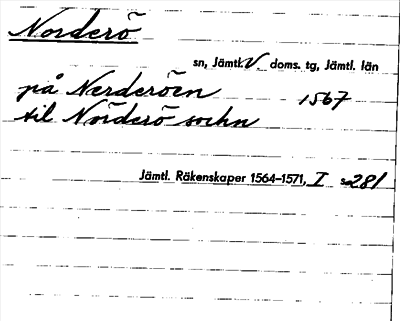 Norderö
sn, Jämtl. V doms. tg, Jämtl. län
på Nerderöen 1567
til Norderö sochn
Jämtl. Räkenskaper 1564–1571, I s 281